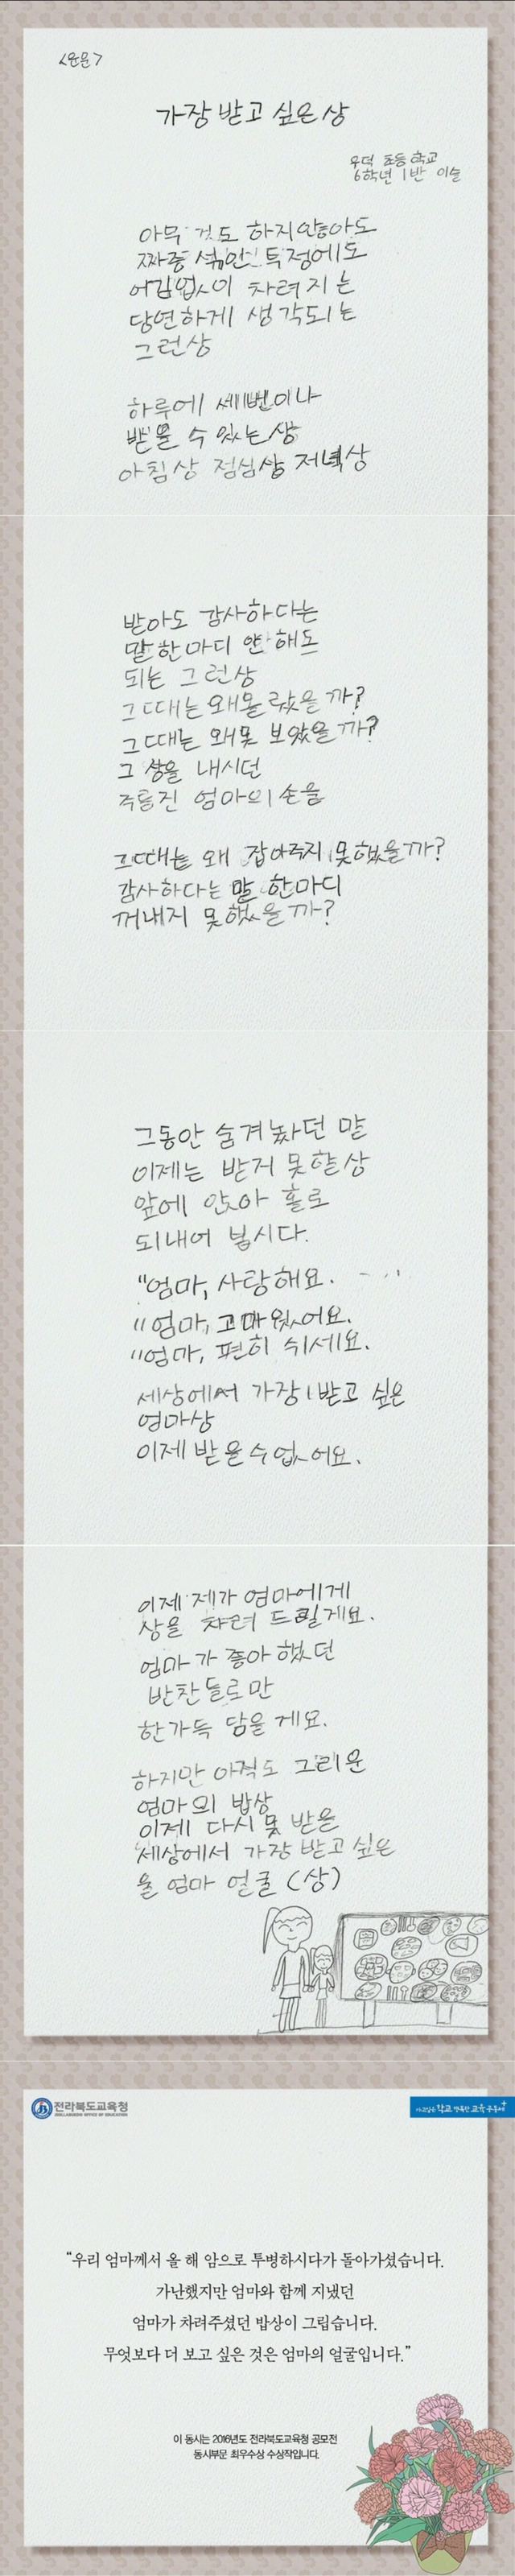 <운문>
가장 받고 싶은 상
우덕 초등학교
6학년 1반 이슬
아무 것도 하지않아도
짜증 섞인 투정에도
어김없이 차려지는
당연하게 생각되는
그런상
하루에 세번이나
받을 수 있는 상
아침상 점심상 저녁상
받아도 감사하다는
말 한마디 안해도
되는 그런상
그때는 왜몰랐을까?
그때는 왜못 보았을까?
그 상을 내시던
주름진 엄마의 손을
그때는 왜 잡아주지 못했을까?
감사하다는 말 한마디
꺼내지 못했을까?
그동안 숨겨놨던 말
이제는 받지 못할상
앞에 앉아 홀로
되내어 봅시다.
"엄마, 사랑해요.
"엄마, 고마웠어요.
"엄마, 편히 쉬세요.
세상에서 가장 받고 싶은
엄마상
이제 받을수 없어요.
이제 제가 엄마에게
상을 차려 드릴게요.
엄마가 좋아했던
반찬들로만
한가득 담을게요.
하지만 아직도 그리운
엄마의 밥상
이제 다시 못 받을
세상에서 가장 받고 싶은
울 엄마 얼굴 (상)
전라북도교육청
JEOLLABUKDO OFFICE OF EDUCATION
가고싶은 학교 행복한 교육공동체
"우리 엄마께서 올 해 암으로 투병하시다가 돌아가셨습니다.
가난했지만 엄마와 함께 지냈던
엄마가 차려주셨던 밥상이 그립습니다.
무엇보다 더 보고 싶은 것은 엄마의 얼굴입니다."
이 동시는 2016년도 전라북도교육청 공모전
동시부문 최우수상 수상작입니다.